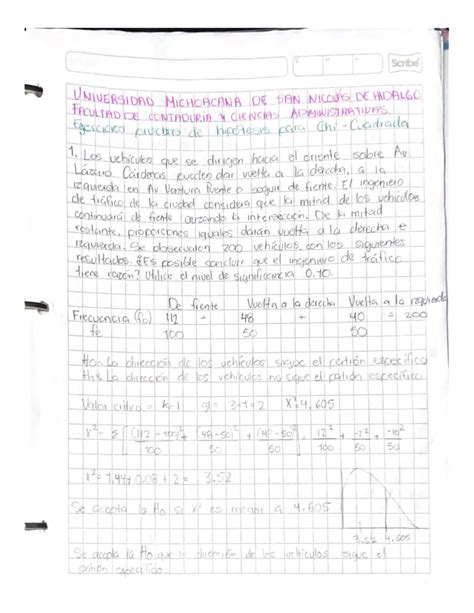 Scribe
UNIVERSIDAD MICHOACANA DE SAN NICOLÁS DE HIDALGO
FACULTAD DE CONTADURIA Y CIENCIAS ADMINISTRATIVAS
Ejercicios prueba de hipótesis para Chi-Cuadrada
1. Los vehículos que se dirigen hacia el oriente sobre Av
Lázaro Cárdenas pueden dar vuelta a la derecha, a la
izquierda en Av Ventura Puente o seguir de frente. El ingeniero
de tráfico de la ciudad considera que la mitad de los vehículos
continuará de frente cruzando la intersección. De la mitad
restante, proporciones iguales darán vuelta a la derecha e
izquierda. Se observaron 200 vehículos, con los siguientes
resultados. ¿Es posible concluir que el ingeniero de tráfico
tiene razón? Utilice el nivel de significancia 0.10.
De frente Vuelta a la derecha Vuelta a la izquierda
Frecuencia (fo) 112 + 48 + 40 = 200
fe 100 50 50
Ho: La dirección de los vehículos sigue el patrón específico
H1: La dirección de los vehículos no sigue el patrón específico
Valor crítico = k-1 gl= 3-1=2 X² 4.605
X² = Σ [(112-100)²/100 + (48-50)²/50 + (40-50)²/50] = 12²/100 + -2²/50 + -10²/50
X² = 1.44 + 0.08 + 2 = 3.52
Se acepta la Ho si X² es menor a 4.605
3.52 4.605
Se acepta la Ho que la dirección de los vehículos sigue el
patrón especifico.